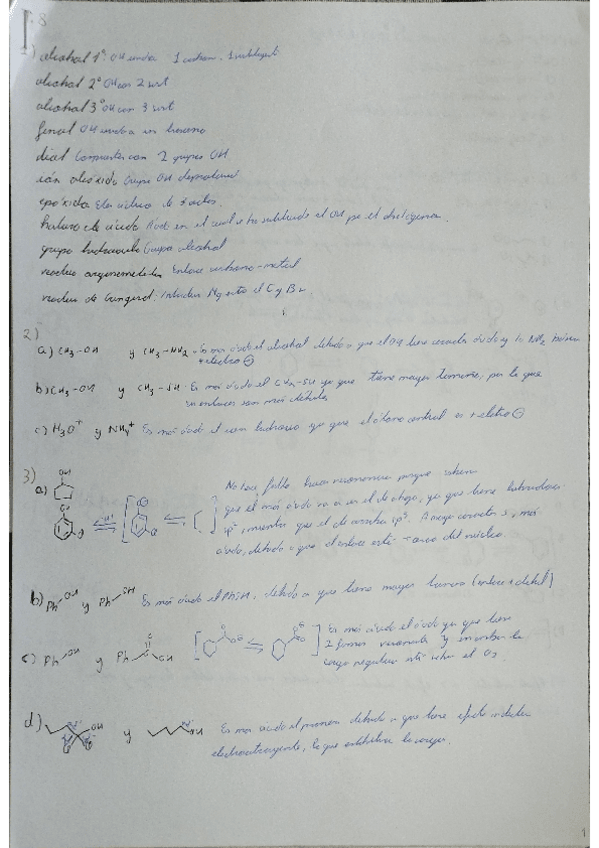 I
1) alcohol 1º: OH unido 1 carbon. 1 sustituyent
alcohol 2º OH con 2 sust
alcohol 3º OH con 3 sust
fenol OH unido a un benceno
diol Compuesto con 2 grupos OH
ión alcóxido Grupo OH desprotonad
epóxido Eter cíclico de 3 atm.
haluro de ácido Ácido en el cual se ha sustituido el OH por el halogeno.
grupo hidroxilo Grupo alcohol
reactivo organometálico Enlace carbono-metal
reactivo de Grignard: Introduce Mg entre el C y Br.
2)
a) CH3-OH y CH3-NH2 · Es más ácido el alcohol debido a que el OH tiene caracter ácido y la NH2 básico
+ electro ⊖
b) CH3-OH y CH3-SH · Es más ácido el CH3-SH ya que tiene mayor tamaño, por lo que
su enlaces son más débiles
c) H3O+ y NH4+ Es más ácido el ya que el átomo central es + eletro ⊖
3)
a) OH
OH
No hace falta hacer resonancia porque
que el más ácido va a ser el de abajo, ya que tiene
sp2, mientras que el de arriba sp3. A mayor caracter s, más
ácido, debido a que el enlace está + cerca del núcleo.
b) Ph OH y Ph SH Es más ácido el PhSH, debido a que tiene mayor tamaño (enlace + débil)
c) Ph OH y Ph O OH Es más ácido el ácido ya que tiene
2 formas resonantes y en ambas la
carga negativa está sobre el O2
d) OH y OH Es más ácido el primero debido a que tiene efecto inductivo
electroatrayente, lo que estabiliza la carga.
1